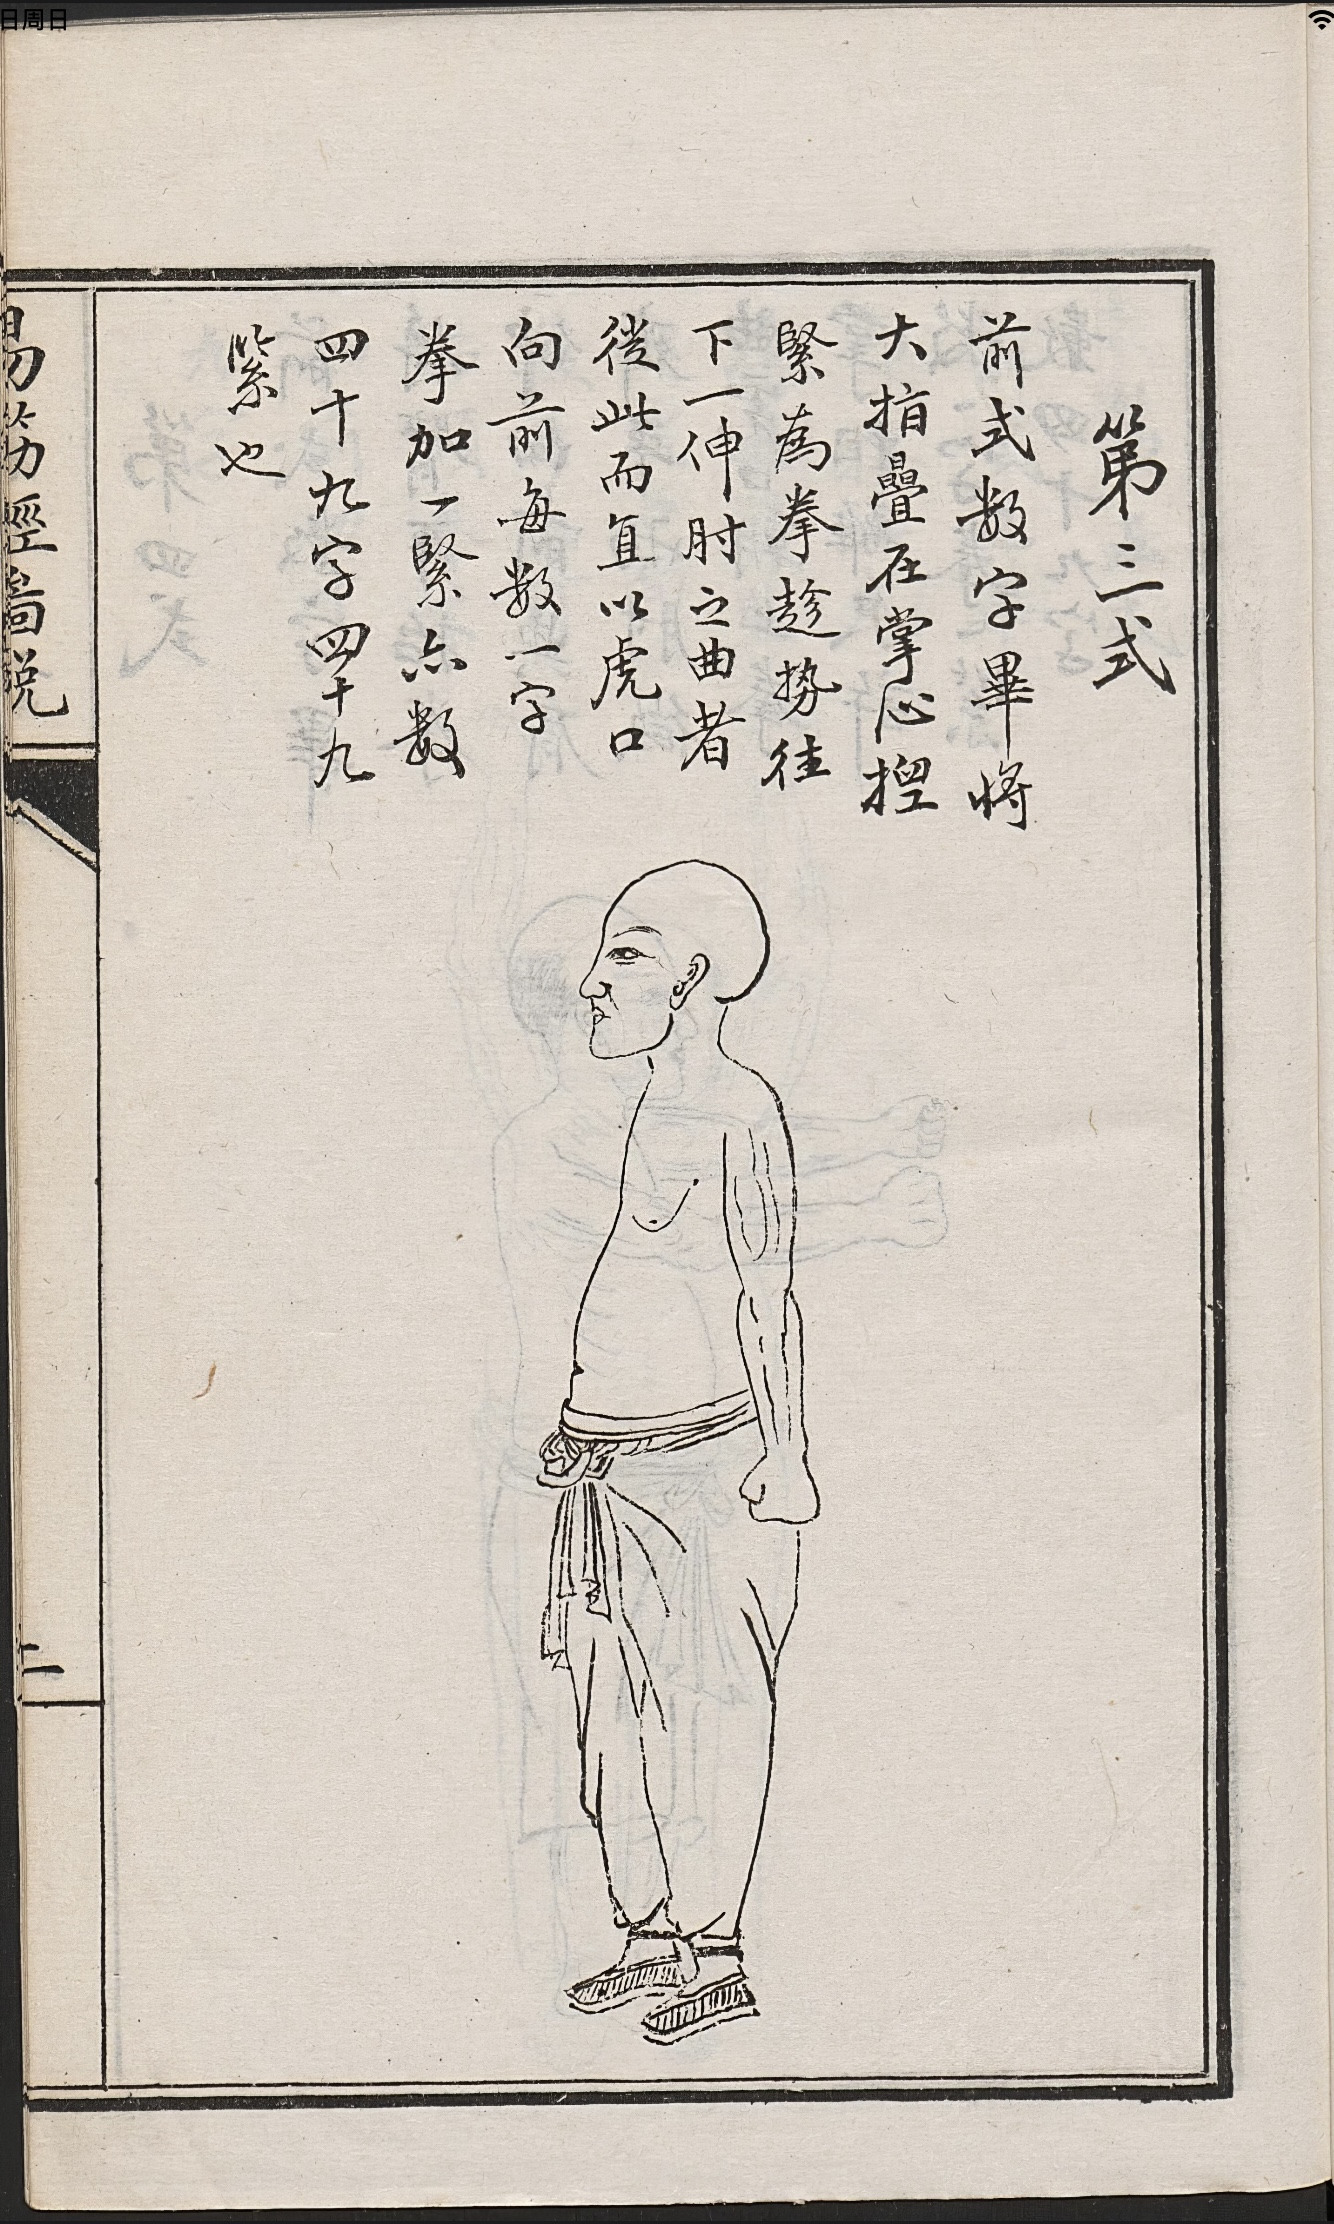 第三式
前式数字畢將
大指疊在掌心揑
緊為拳趁势徃
下一伸肘之曲者
從此而直以虎口
向前每数一字
拳加一緊亦数
四十九字四十九
緊也
易筋經啚説
二
日周日